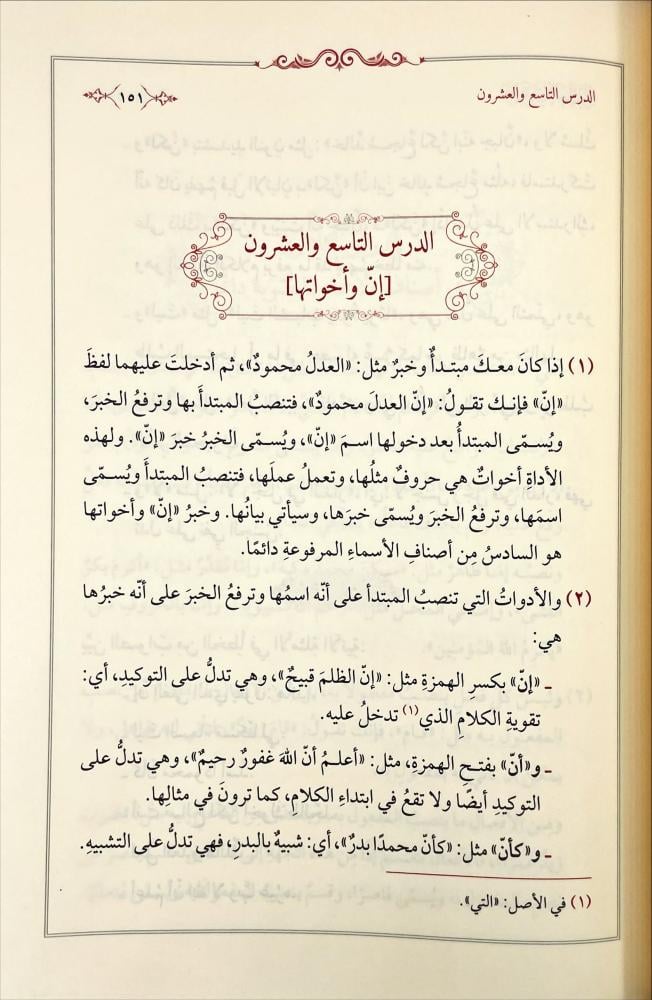 الدرس التاسع والعشرون
١٥١
الدرس التاسع والعشرون
[إنّ وأخواتها]
(١) إذا كانَ معكَ مبتدأٌ وخبرٌ مثل: «العدلُ محمودٌ»، ثم أدخلتَ عليهما لفظَ
«إنّ» فإنك تقولُ: «إنّ العدلَ محمودٌ»، فتنصبُ المبتدأَ بها وترفعُ الخبرَ،
ويُسمّى المبتدأُ بعد دخولها اسمَ «إنّ»، ويُسمّى الخبرُ خبرَ «إنّ». ولهذه
الأداةِ أخواتٌ هي حروفٌ مثلُها، وتعملُ عملَها، فتنصبُ المبتدأَ ويُسمّى
اسمَها، وترفعُ الخبرَ ويُسمّى خبرَها، وسيأتي بيانُها. وخبرُ «إنّ» وأخواتها
هو السادسُ مِن أصنافِ الأسماءِ المرفوعةِ دائمًا.
(٢) والأدواتُ التي تنصبُ المبتدأ على أنّه اسمُها وترفعُ الخبرَ على أنّه خبرُها
هي:
ـ «إنّ» بكسرِ الهمزةِ مثل: «إنّ الظلمَ قبيحٌ»، وهي تدلُّ على التوكيدِ، أي:
تقويةِ الكلامِ الذي(١) تدخلُ عليه.
ـ و«أنّ» بفتحِ الهمزةِ، مثل: «أعلمُ أنّ اللهَ غفورٌ رحيمٌ»، وهي تدلُّ على
التوكيدِ أيضًا ولا تقعُ في ابتداءِ الكلامِ، كما ترونَ في مثالِها.
ـ و«كأنّ» مثل: «كأنّ محمدًا بدرٌ»، أي: شبيهٌ بالبدرِ، فهي تدلُّ على التشبيهِ.
(١) في الأصل: «التي».